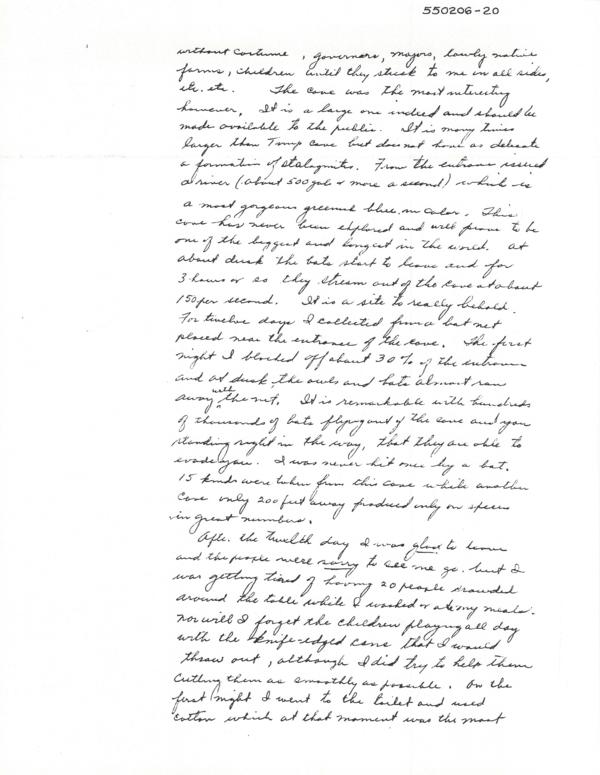 550206-20
without costume, governors, mayors, lowly native
farms, children until they stuck to me on all sides,
etc. etc. The cave was the most interesting
however. It is a large one indeed and should be
made available to the public. It is many times
larger than Timp cave but does not have as delicate
a formation of stalagmites. From the entrance issued
a river (about 500 gals & more a second) which is
a most gorgeous greenish blue in color. This
cave has never been explored and will prove to be
one of the biggest and longest in the world. At
about dusk the bats start to leave and for
3 hours or so they stream out of the cave at about
150 per second. It is a site to really behold.
For twelve days I collected from a bat net
placed near the entrance of the cave. The first
night I blocked off about 30% of the entrance
and at dusk the owls and bats almost ran
away with the net. It is remarkable with hundreds
of thousands of bats flying out of the cave and you
standing right in the way, that they are able to
evade you. I was never hit once by a bat.
15 kinds were taken from this cave while another
cave only 200 feet away produced only one species
in great numbers.
After the twelfth day I was glad to leave
and the people were sorry to see me go but I
was getting tired of having 20 people crowded
around the table while I worked or ate my meals.
Nor will I forget the children playing all day
with the knife-edged cans that I would
throw out, although I did try to help them
cutting them as smoothly as possible. On the
first night I went to the toilet and used
cotton which at that moment was the most